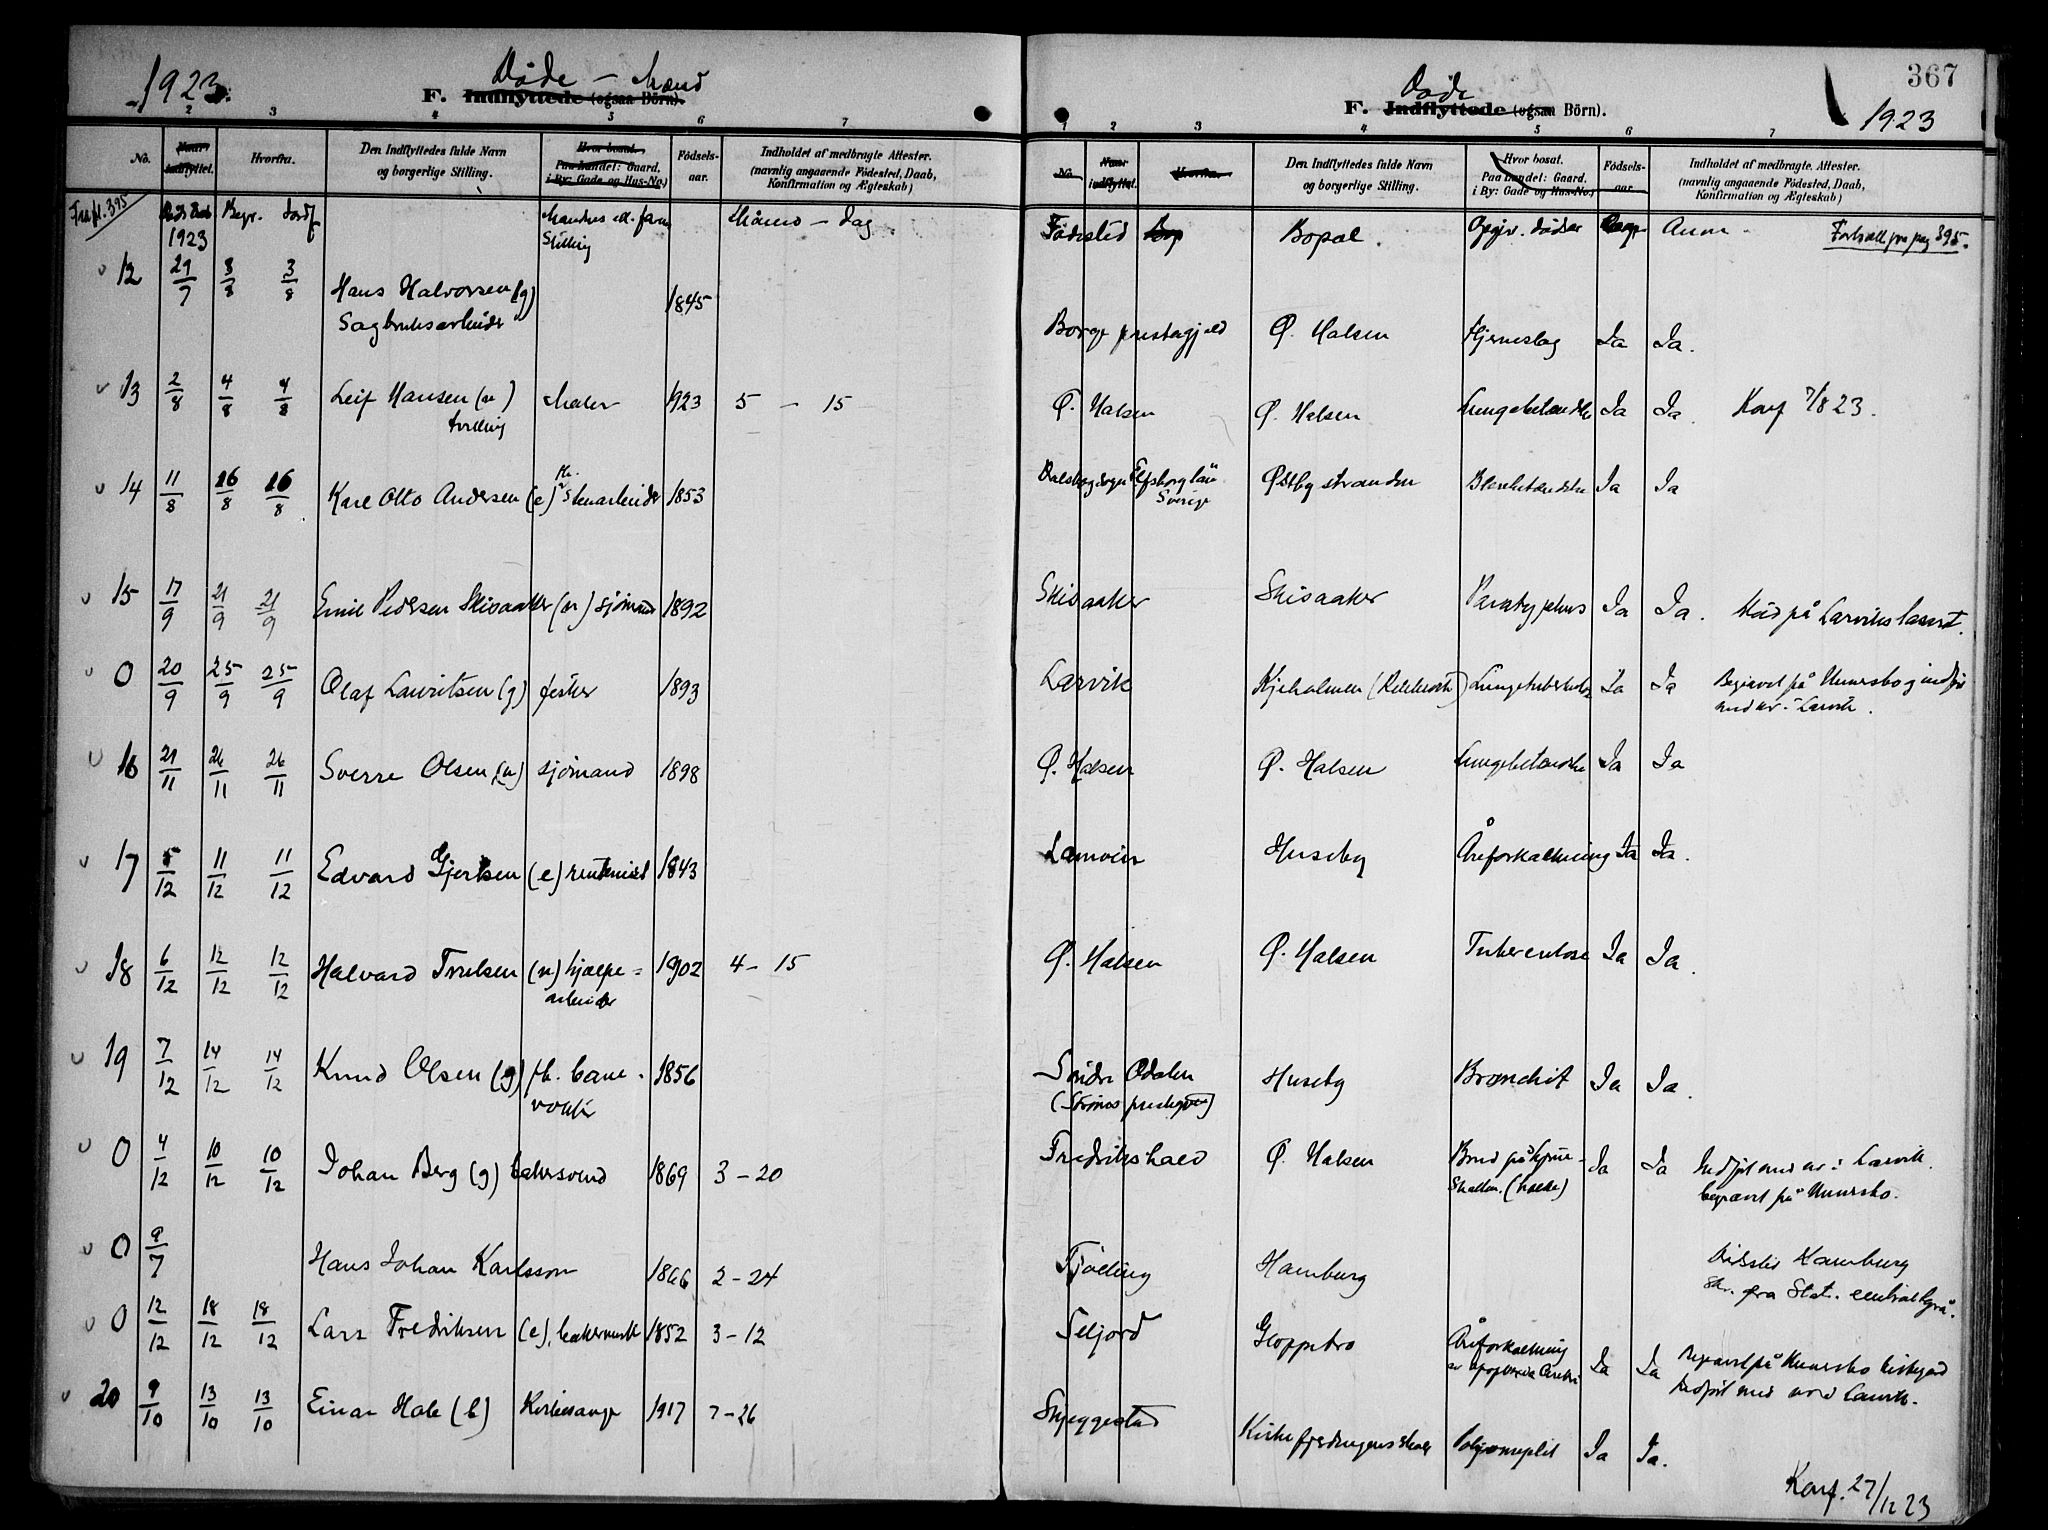 1923.
Døde — Mænd
F. Indflyttede (ogsaa Börn).
2 3 4 5 6 7
No.
Naar indflyttet.
Hvorfra.
Den Indflyttedes fulde Navn
og borgerlige Stilling.
Hvor bosat.
Paa Landet: Gaard.
i By: Gade og Hus-No.)
Födsels-
aar.
Indholdet af medbragte Attester.
(navnlig angaaende Födested, Daab,
Konfirmation og Ægteskab)
395
1923
Begr. Jordf
Stilling
Måned — Dag
12 29/7 3/8 3/8 Hans Halvorsen (g) 1845
Sagbruksarbeider
13 2/8 4/8 4/8 Leif Hansen (u) Maler 1923 5 — 15
tvilling
14 11/8 16/8 16/8 Karl Otto Andersen (e) fh. Stenarbeider 1853
15 17/9 21/9 21/9 Emil Pedersen Skisaaker (u) sjømand 1892
0 20/9 25/9 25/9 Olaf Lauritsen (g) fisker 1893
16 21/11 26/11 26/11 Sverre Olsen (u) sjømand 1898
17 5/12 11/12 11/12 Edvard Gjertsen (e) rentenist 1843
18 6/12 12/12 12/12 Halvard Truelsen (u) hjælpe= 1902 4 - 15
arbeider
19 7/12 14/12 14/12 Knud Olsen (g) fh. bane- 1856
vokter
0 4/12 10/12 10/12 Johan Berg (g) bakersvend 1869 3 - 20
0 9/7 Hans Johan Karlsson 1866 2 - 24
0 12/12 18/12 18/12 Lars Fredriksen (e), 1852 3 - 12
20 9/10 13/10 13/10 Einar Hole (b) Kirkesanger 1917 7 - 26
Døde
F. Indflyttede (ogsaa Börn).
367
1923
1 2 3 4 5 6 7
No.
Naar
indflyttet.
Hvorfra.
Den Indflyttedes fulde Navn
og borgerlige Stilling.
Hvor bosat.
Paa Landet: Gaard.
i By: Gade og Hus-No.)
Födsels-
aar.
Indholdet af medbragte Attester.
(navnlig angaaende Födested, Daab,
Konfirmation og Ægteskab)
Fødested Bopæl. Opgiv. dødsår Anm. pag 395.
Borge prestegjeld Ø. Halsen Hjerneslag Ja Ja.
Ø. Halsen Ø. Halsen Lungebetændelse Ja Ja. Konf 7/8 23.
Elfsborg län Østbystranden Ja Ja
Sverige
Skisaaker Skisaaker Paratyphus Ja Ja. Død på Larviks lasaret.
Larvik Kjeholmen Lungetuberkulose Ja Ja Begravet på Undersbo og indført
under i Larvik.
Ø. Halsen Ø. Halsen Lungebetændelse Ja Ja
Lamoen Huseby Åreforkalkning Ja Ja.
Ø. Halsen Ø. Halsen Tuberculose Ja Ja.
Søndre Odalen Huseby Bronchit Ja Ja.
(Strømos prestegjeld)
Fredrikshald Ø. Halsen Brud på hjerne- Ja Ja Indført med nr i Larvik.
skallen. begravet på Undersbo.
Tjølling Hamburg Dødssted Hamburg
Skr. fra Stat. centralbyrå.
Seljord Gloppebro Åreforkalkning Ja Ja Begravet på Undersbo kirkegård
indført med nr i Larvik.
Skjeggestad Kirkefjerdingens skole Ja Ja.
Konf. 27/12 23